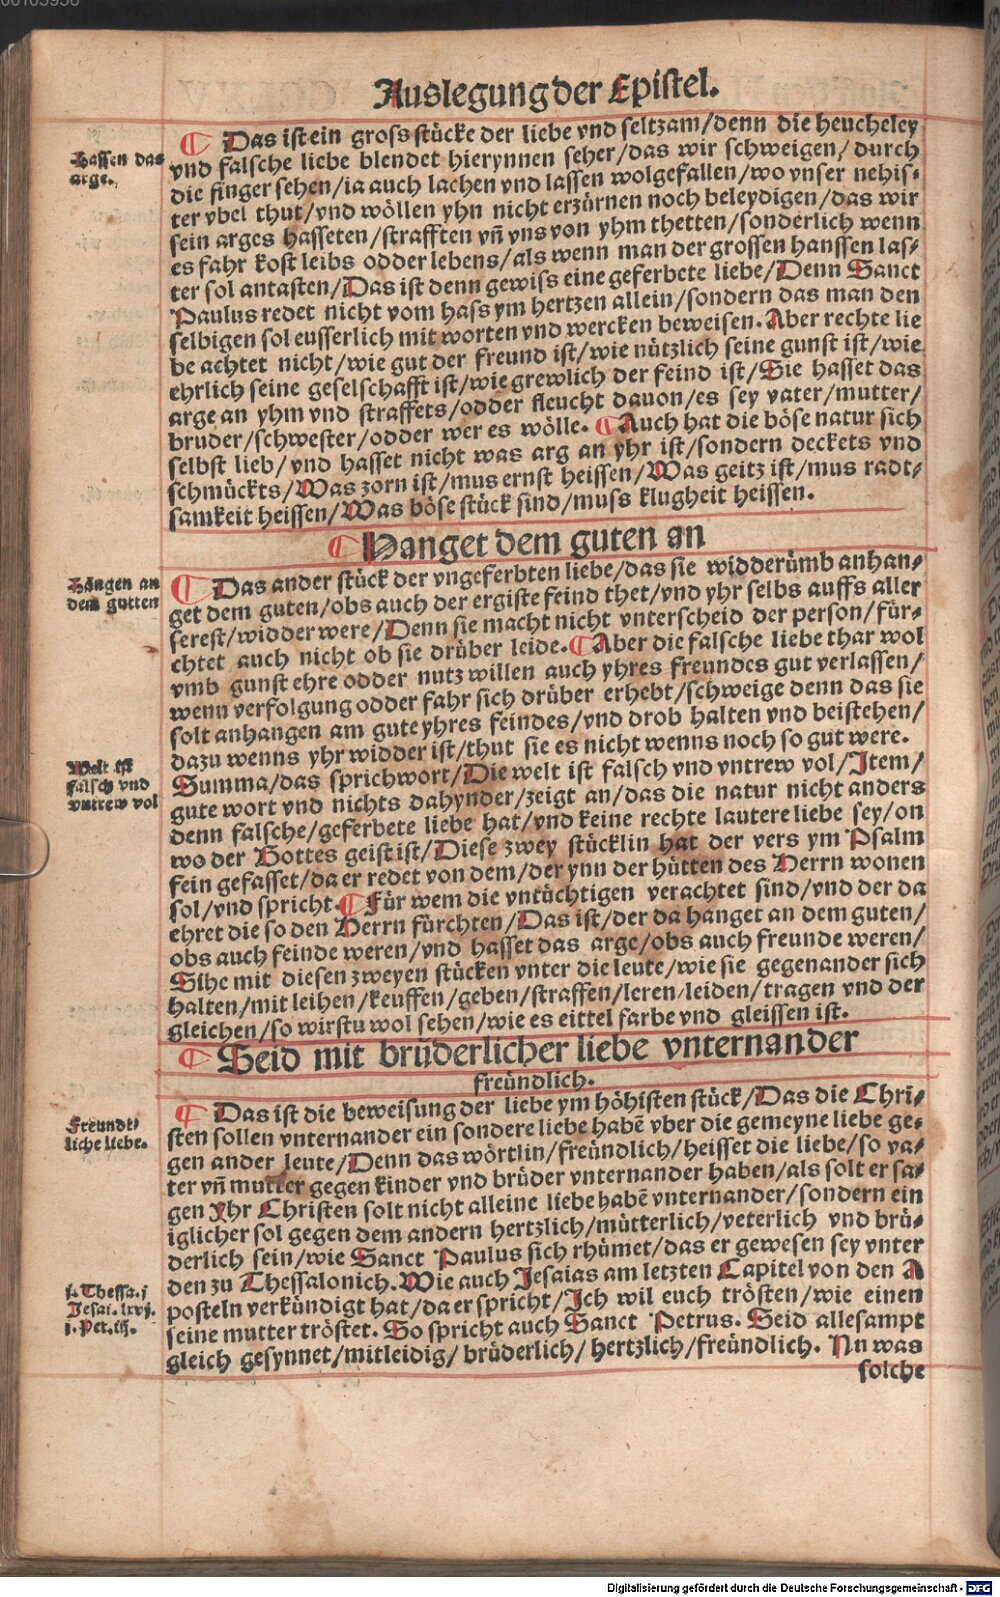 Auslegung der Epistel.
Hassen das
arge.
¶ Das ist ein gross stücke der liebe vnd seltzam/denn die heucheley
vnd falsche liebe blendet hierynnen seher/das wir schweigen/ durch
die finger sehen/ia auch lachen vnd lassen wolgefallen/wo vnser nehis⸗
ter vbel thut/vnd wöllen yhn nicht erzürnen noch beleydigen/das wir
sein arges hasseten/strafften vn̄ vns von yhm thetten/sonderlich wenn
es fahr kost leibs odder lebens/als wenn man der grossen hanssen las⸗
ter sol antasten/Das ist denn gewiss eine geferbete liebe/Denn Sanct
Paulus redet nicht vom hass ym hertzen allein/sondern das man den
selbigen sol eusserlich mit worten vnd wercken beweisen. Aber rechte lie
be achtet nicht/wie gut der freund ist/wie nützlich seine gunst ist/wie
ehrlich seine geselschafft ist/wie grewlich der feind ist/Sie hasset das
arge an yhm vnd straffets/odder fleucht dauon/es sey vater/mutter/
bruder/schwester/odder wer es wölle. ¶ Auch hat die böse natur sich
selbst lieb/vnd hasset nicht was arg an yhr ist/sondern deckets vnd
schmückts/Was zorn ist/mus ernst heissen/Was geitz ist/mus radt⸗
samkeit heissen/Was böse stück sind/muss klugheit heissen.
¶ Hanget dem guten an
Hängen an
dem gutten
¶ Das ander stück der vngeferbten liebe/das sie widderümb anhan⸗
get dem guten/obs auch der ergiste feind thet/vnd yhr selbs auffs aller
ferest/widder were/Denn sie macht nicht vnterscheid der person/für⸗
chtet auch nicht ob sie drüber leide. ¶ Aber die falsche liebe thar wol
vmb gunst ehre odder nutz willen auch yhres freundes gut verlassen/
wenn verfolgung odder fahr sich drüber erhebt/schweige denn das sie
solt anhangen am gute yhres feindes/vnd drob halten vnd beistehen/
dazu wenns yhr widder ist/thut sie es nicht wenns noch so gut were.
Welt ist
falsch vnd
vntrew vol
Summa/das sprichwort/Die welt ist falsch vnd vntrew vol/Item/
gute wort vnd nichts dahynder/zeigt an/das die natur nicht anders
denn falsche/geferbete liebe hat/vnd keine rechte lautere liebe sey/on
wo der Gottes geist ist/Diese zwey stücklin hat der vers ym Psalm
fein gefasset/da er redet von dem/der ynn der hütten des Herrn wonen
sol/vnd spricht. ¶ Für wem die vntüchtigen verachtet sind/vnd der da
ehret die so den Herrn fürchten/Das ist/der da hanget an dem guten/
obs auch feinde weren/vnd hasset das arge/obs auch freunde weren/
Sihe mit diesen zweyen stücken vnter die leute/wie sie gegenander sich
halten/mit leihen/keuffen/geben/straffen/leren/leiden/tragen vnd der
gleichen/so wirstu wol sehen/wie es eittel farbe vnd gleissen ist.
¶ Seid mit brüderlicher liebe vnternander
freündlich.
Freundt⸗
liche liebe.
¶ Das ist die beweisung der liebe ym höhisten stück/Das die Chri⸗
sten sollen vnternander ein sondere liebe habē vber die gemeyne liebe ge⸗
gen ander leute/Denn das wörtlin/freündlich/heisset die liebe/so va⸗
ter vn̄ mutter gegen kinder vnd brüder vnternander haben/als solt er sa⸗
gen Yhr Christen solt nicht alleine liebe habē vnternander/sondern ein
iglicher sol gegen dem andern hertzlich/mütterlich/veterlich vnd brü⸗
derlich sein/wie Sanct Paulus sich rhümet/das er gewesen sey vnter
den zu Thessalonich. Wie auch Jesaias am letzten Capitel von den A
posteln verkündigt hat/da er spricht/Ich wil euch trösten/wie einen
seine mutter tröstet. So spricht auch Sanct Petrus. Seid allesampt
gleich gesynnet/mitleidig/ brüderlich/ hertzlich/freündlich. Nu was
j. Thessa. j
Jesai. lxvj.
j. Pet. iij.
solche
Digitalisierung gefördert durch die Deutsche Forschungsgemeinschaft - DFG